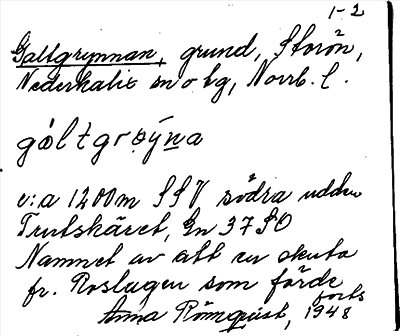 1-2
Galtgrynnan, grund, Storön,
Nederkalix sn o bg, Norrb. l.
gáltgrøýna
c:a 1200m SSV södra udden
Trutskäret, Gn 37 SO
Namnet av att en skuta
fr. Roslagen som förde
forts
Anna Römquist, 1948